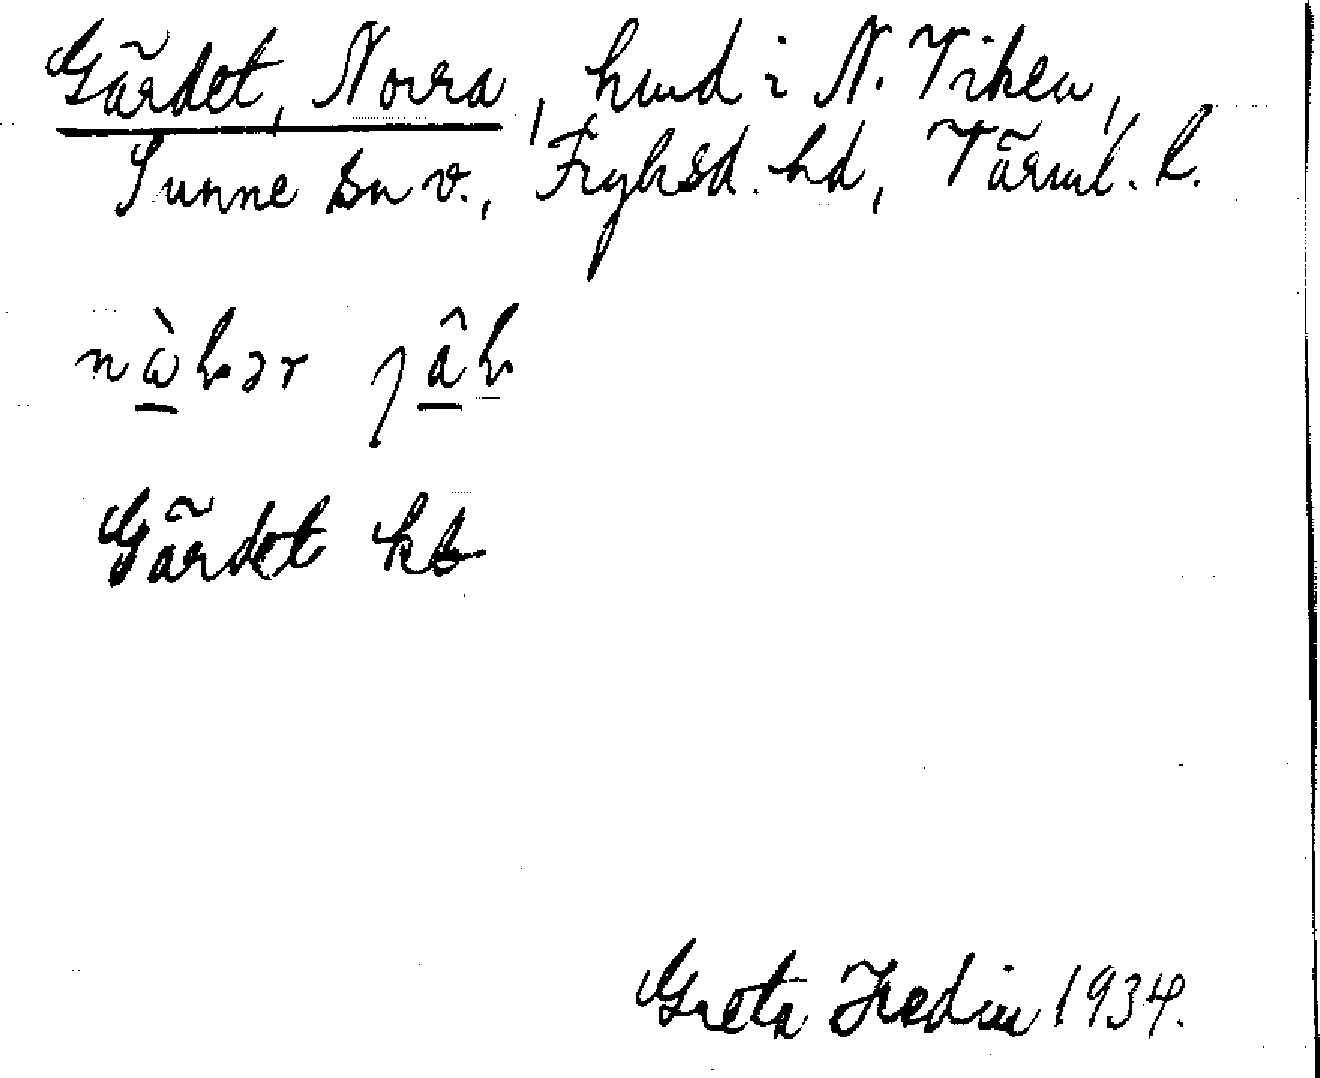 Gärdet, Norra, hmd i N. Viken,
Sunne sn v., Fryksd. hd, Värml. l.
Gärdet kb
Greta Hedin 1934.